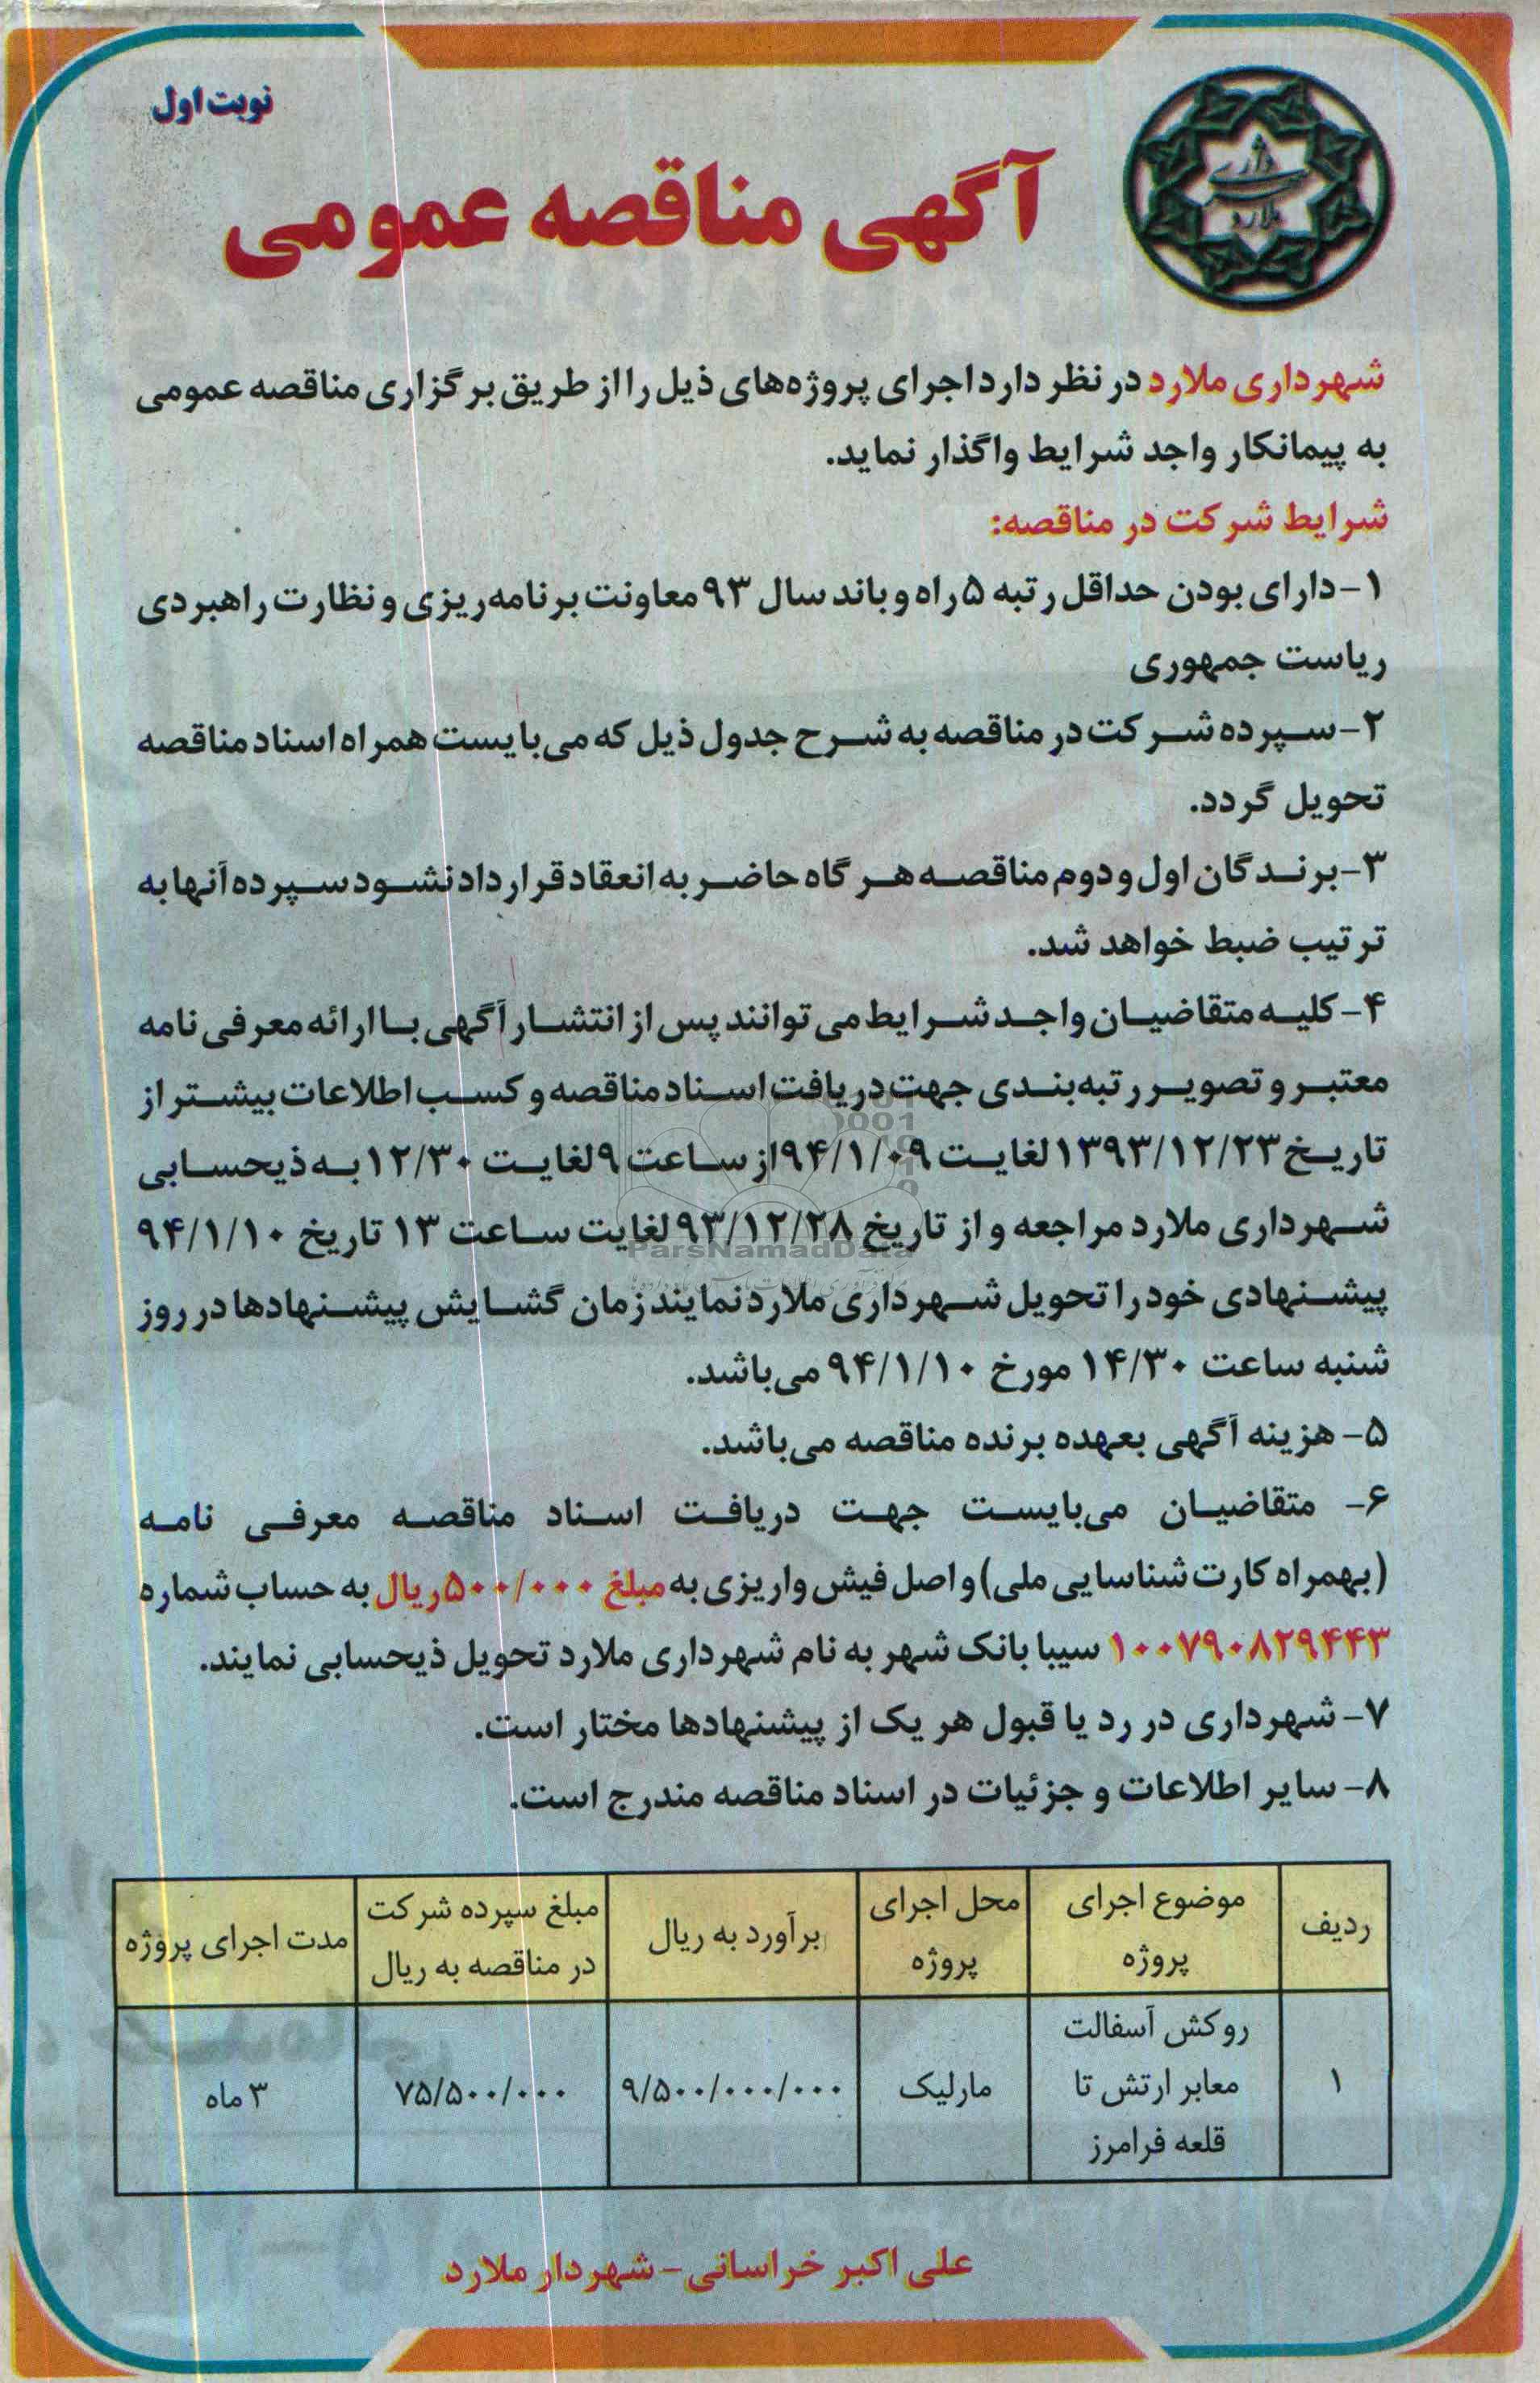 نوبت اول
شهرداری
ملارد
آگهی مناقصه عمومی
شهرداری ملارد در نظر دارد اجرای پروژه‌های ذیل را از طریق برگزاری مناقصه عمومی
به پیمانکار واجد شرایط واگذار نماید.
شرایط شرکت در مناقصه:
۱- دارای بودن حداقل رتبه ۵ راه و باند سال ۹۳ معاونت برنامه‌ریزی و نظارت راهبردی
ریاست جمهوری
۲- سپرده شرکت در مناقصه به شرح جدول ذیل که می‌بایست همراه اسناد مناقصه
تحویل گردد.
۳- برندگان اول و دوم مناقصه هرگاه حاضر به انعقاد قرارداد نشود سپرده آنها به
ترتیب ضبط خواهد شد.
۴- کلیه متقاضیان واجد شرایط می توانند پس از انتشار آگهی با ارائه معرفی نامه
معتبر و تصویر رتبه‌بندی جهت دریافت اسناد مناقصه و کسب اطلاعات بیشتر از
تاریخ ۱۳۹۳/۱۲/۲۳ لغایت ۹۴/۱/۰۹ از ساعت ۹ لغایت ۱۲/۳۰ به ذیحسابی
شهرداری ملارد مراجعه و از تاریخ ۹۳/۱۲/۲۸ لغایت ساعت ۱۳ تاریخ ۹۴/۱/۱۰
پیشنهادی خود را تحویل شهرداری ملارد نمایند زمان گشایش پیشنهادها در روز
شنبه ساعت ۱۴/۳۰ مورخ ۹۴/۱/۱۰ می‌باشد.
۵- هزینه آگهی بعهده برنده مناقصه می‌باشد.
۶- متقاضیان می‌بایست جهت دریافت اسناد مناقصه معرفی نامه
(بهمراه کارت شناسایی ملی) و اصل فیش واریزی به مبلغ ۵۰۰/۰۰۰ ریال به حساب شماره
۱۰۰۷۹۰۸۲۹۴۴۳ سیبا بانک شهر به نام شهرداری ملارد تحویل ذیحسابی نمایند.
۷- شهرداری در رد یا قبول هر یک از پیشنهادها مختار است.
۸- سایر اطلاعات و جزئیات در اسناد مناقصه مندرج است.
ParsNamadData
ردیف
موضوع اجرای
پروژه
محل اجرای
پروژه
برآورد به ریال
مبلغ سپرده شرکت
در مناقصه به ریال
مدت اجرای پروژه
۱
روکش آسفالت
معابر ارتش تا
قلعه فرامرز
مارلیک
۹/۵۰۰/۰۰۰/۰۰۰
۷۵/۵۰۰/۰۰۰
۳ ماه
علی اکبر خراسانی - شهردار ملارد